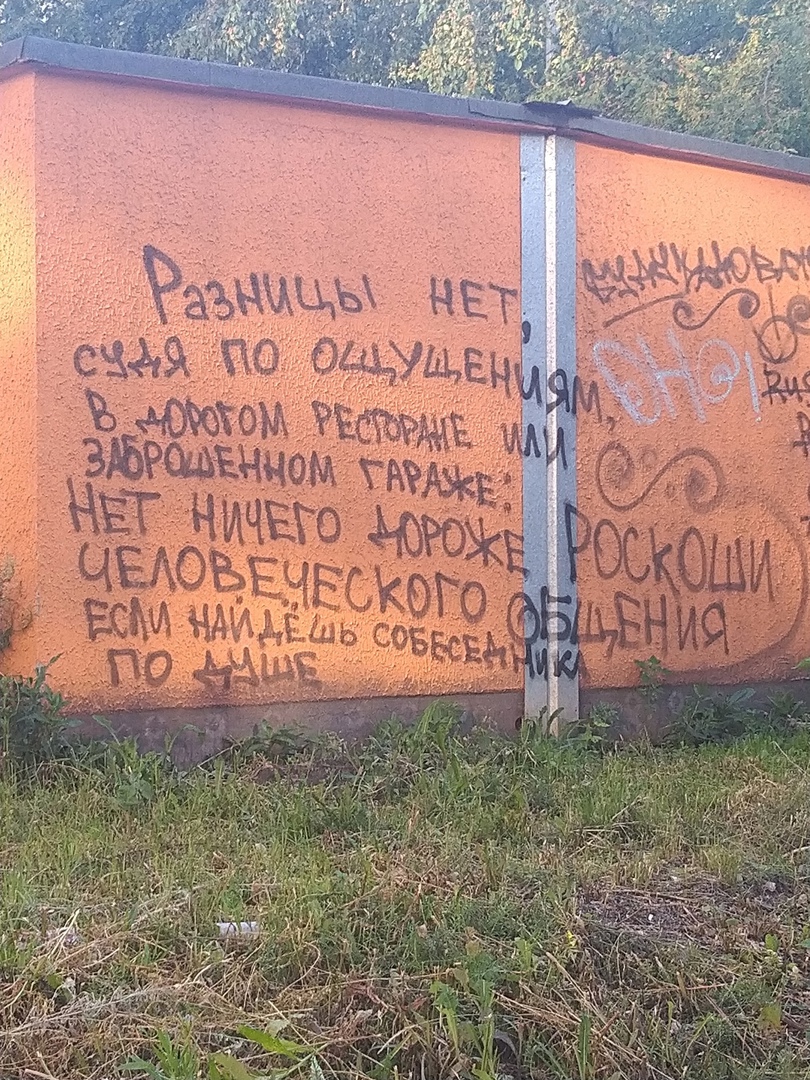 Разницы нет,
судя по ощущениям,
в дорогом ресторане или
заброшенном гараже:
Нет ничего дороже Роскоши
человеческого общения
если найдёшь собеседника
по душе